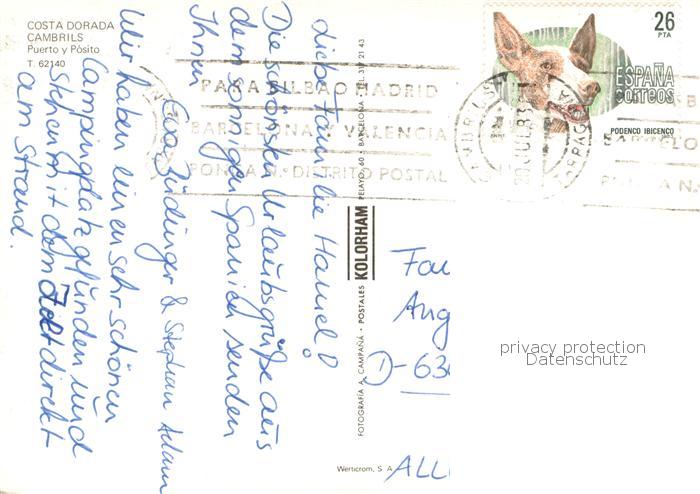 COSTA DORADA
CAMBRILS
Puerto y Pósito
T. 62140
26
PTA
ESPAÑA
correos
PODENCO IBICENCO
PARA BILBAO MADRID
BARCELONA Y VALENCIA
PONGA N.º DISTRITO POSTAL
CAMBRILS
TARRAGONA
Liebe Familie Hamel!
Die schönsten Urlaubsgrüße aus
dem sonnigen Spanien senden
Ihnen
Eva & Stephan Adam
Wir haben einen sehr schönen
Campingplatz gefunden und
stehen mit dem Zelt direkt
am Strand.
FOTOGRAFIA A. CAMPAÑÁ - POSTALES KOLORHAM PELAYO, 60 - BARCELONA TEL. 317 21 43
Fa
Ang
D-63
ALL
Werticrom, S. A.
privacy protection
Datenschutz